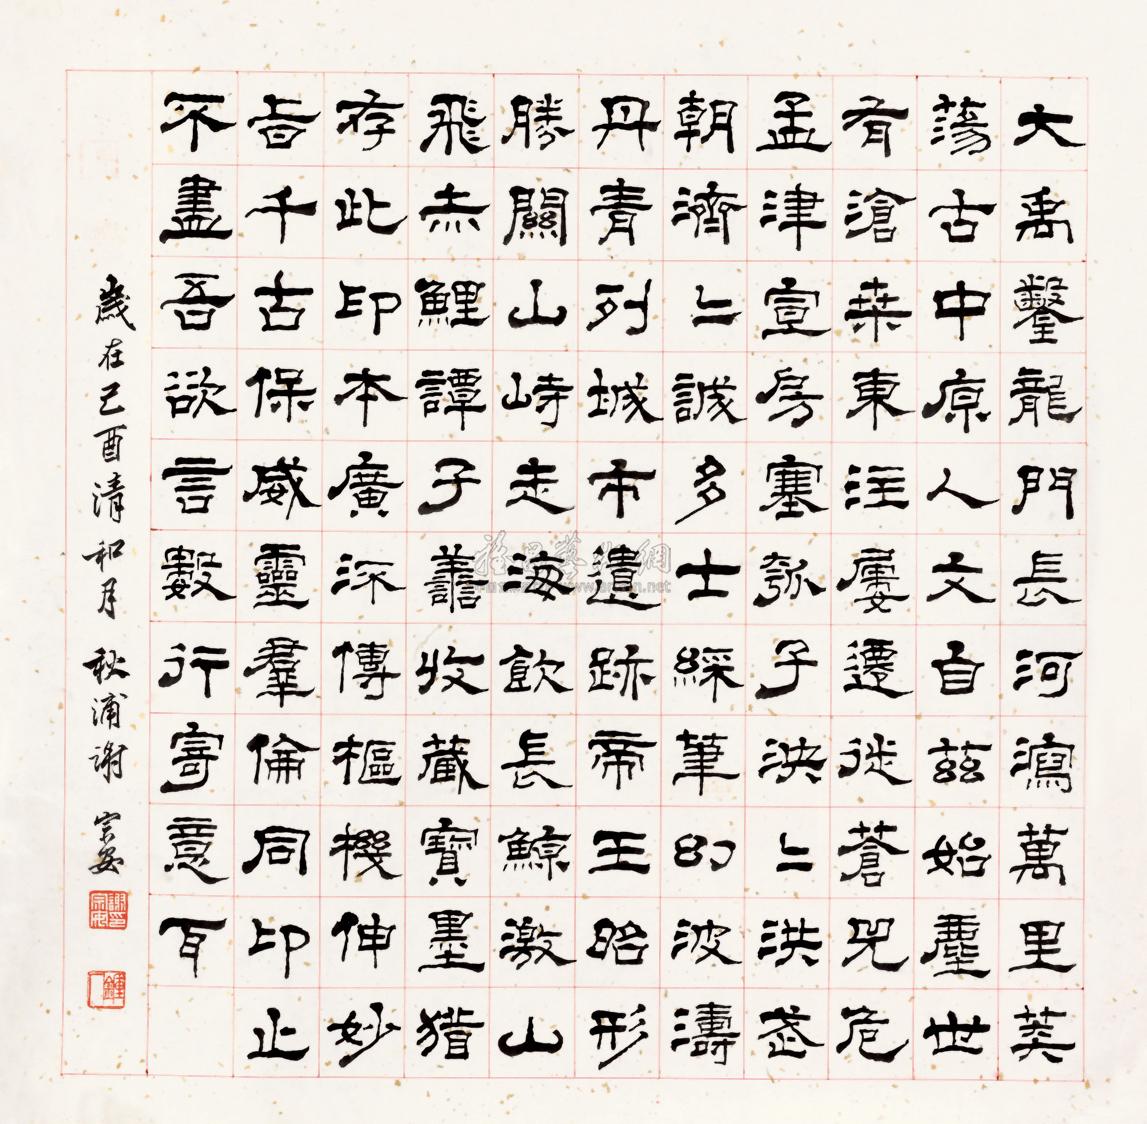 大禹鑿龍門長河瀉萬里莽
蕩古中原人文自茲始塵世
有滄桒東注屢遷徙蒼兕危
孟津宣房塞瓠子泱〻洪武
朝濟〻誠多士綵筆幻波濤
丹青列城市遺跡帝王昭形
勝關山峙走海飲長鯨激山
飛赤鯉譚子善收藏寶墨猶
存此印本廣流傳樞機伸妙
旨千古保威靈羣倫同印止
不盡吾欲言數行寄意耳
歲在己酉清和月 秋浦謝宗安